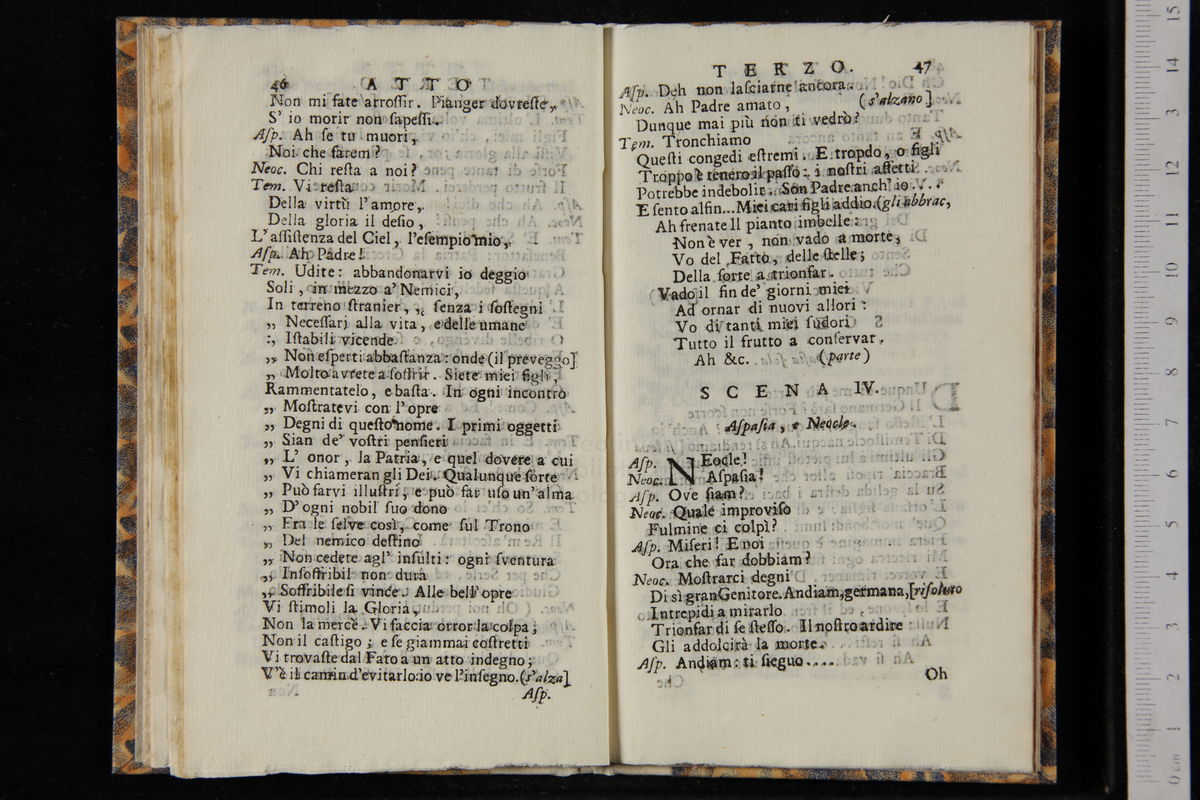 46 ATTO
Non mi fate arroſſir. Pianger dovreſte,
S' io morir non ſapeſſi.
Aſp. Ah ſe tu muori,
Noi che farem?
Neoc. Chi reſta a noi?
Tem. Vi reſta
Della virtù l'amore,
Della gloria il deſio,
L'aſſiſtenza del Ciel, l'eſempio mio,
Aſp. Ah Padre!
Tem. Udite: abbandonarvi io deggio
Soli, in mezzo a' Nemici,
In terreno ſtranier, ,, ſenza i ſoſtegni
,, Neceſſarj alla vita, e delle umane
,, Iſtabili vicende
,, Non eſperti abbaſtanza: onde (il preveggo]
,, Molto avrete a ſoffrir. Siete miei figli,
Rammentatelo, e baſta. In ogni incontro
,, Moſtratevi con l'opre
,, Degni di queſto nome. I primi oggetti
,, Sian de' voſtri penſieri
,, L' onor, la Patria, e quel dovere a cui
,, Vi chiameran gli Dei. Qualunque ſorte
,, Può farvi illuſtri, e può far uſo un' alma
,, D'ogni nobil ſuo dono
,, Fra le ſelve così, come ſul Trono
,, Del nemico deſtino
,, Non cedete agl' inſulti: ogni ſventura
,, Inſoffribil non dura
,, Soffribile ſi vince. Alle bell'opre
Vi ſtimoli la Gloria,
Non la mercè. Vi faccia orror la colpa;
Non il caſtigo; e ſe giammai coſtretti
Vi trovaſte dal Fato a un atto indegno;
V'è il camin d'evitarlo: io ve l'inſegno. (s'alza]
Aſp.
TERZO. 47
Aſp. Deh non laſciarne ancora.
Neoc. Ah Padre amato, (s'alzano]
Dunque mai più non ti vedrò?
Tem. Tronchiamo
Queſti congedi eſtremi. E tropdo, o figli
Troppo è tenero il paſſo: i noſtri affetti
Potrebbe indebolir. Son Padre anch' io...
E ſento alfin... Miei cari figli addio. (gli abbrac,
Ah frenate Il pianto imbelle:
Non è ver, non vado a morte;
Vo del Fatto, delle ſtelle;
Della ſorte a trionfar.
Vado il fin de' giorni miei
Ad ornar di nuovi allori:
Vo di tanti miei ſudori
Tutto il frutto a conſervar.
Ah &c. (parte)
SCENA IV.
Aſpaſia, e Neocle.
Aſp. NEocle!
Neoc. Aſpaſia!
Aſp. Ove ſiam?
Neoc. Quale improviſo
Fulmine ci colpì?
Aſp. Miſeri! E noi
Ora che far dobbiam?
Neoc. Moſtrarci degni
Di sì gran Genitore. Andiam, germana, [riſoluto
Intrepidi a mirarlo
Trionfar di ſe ſteſſo. Il noſtro ardire
Gli addolcirà la morte.
Aſp. Andiam: ti ſieguo....
Oh